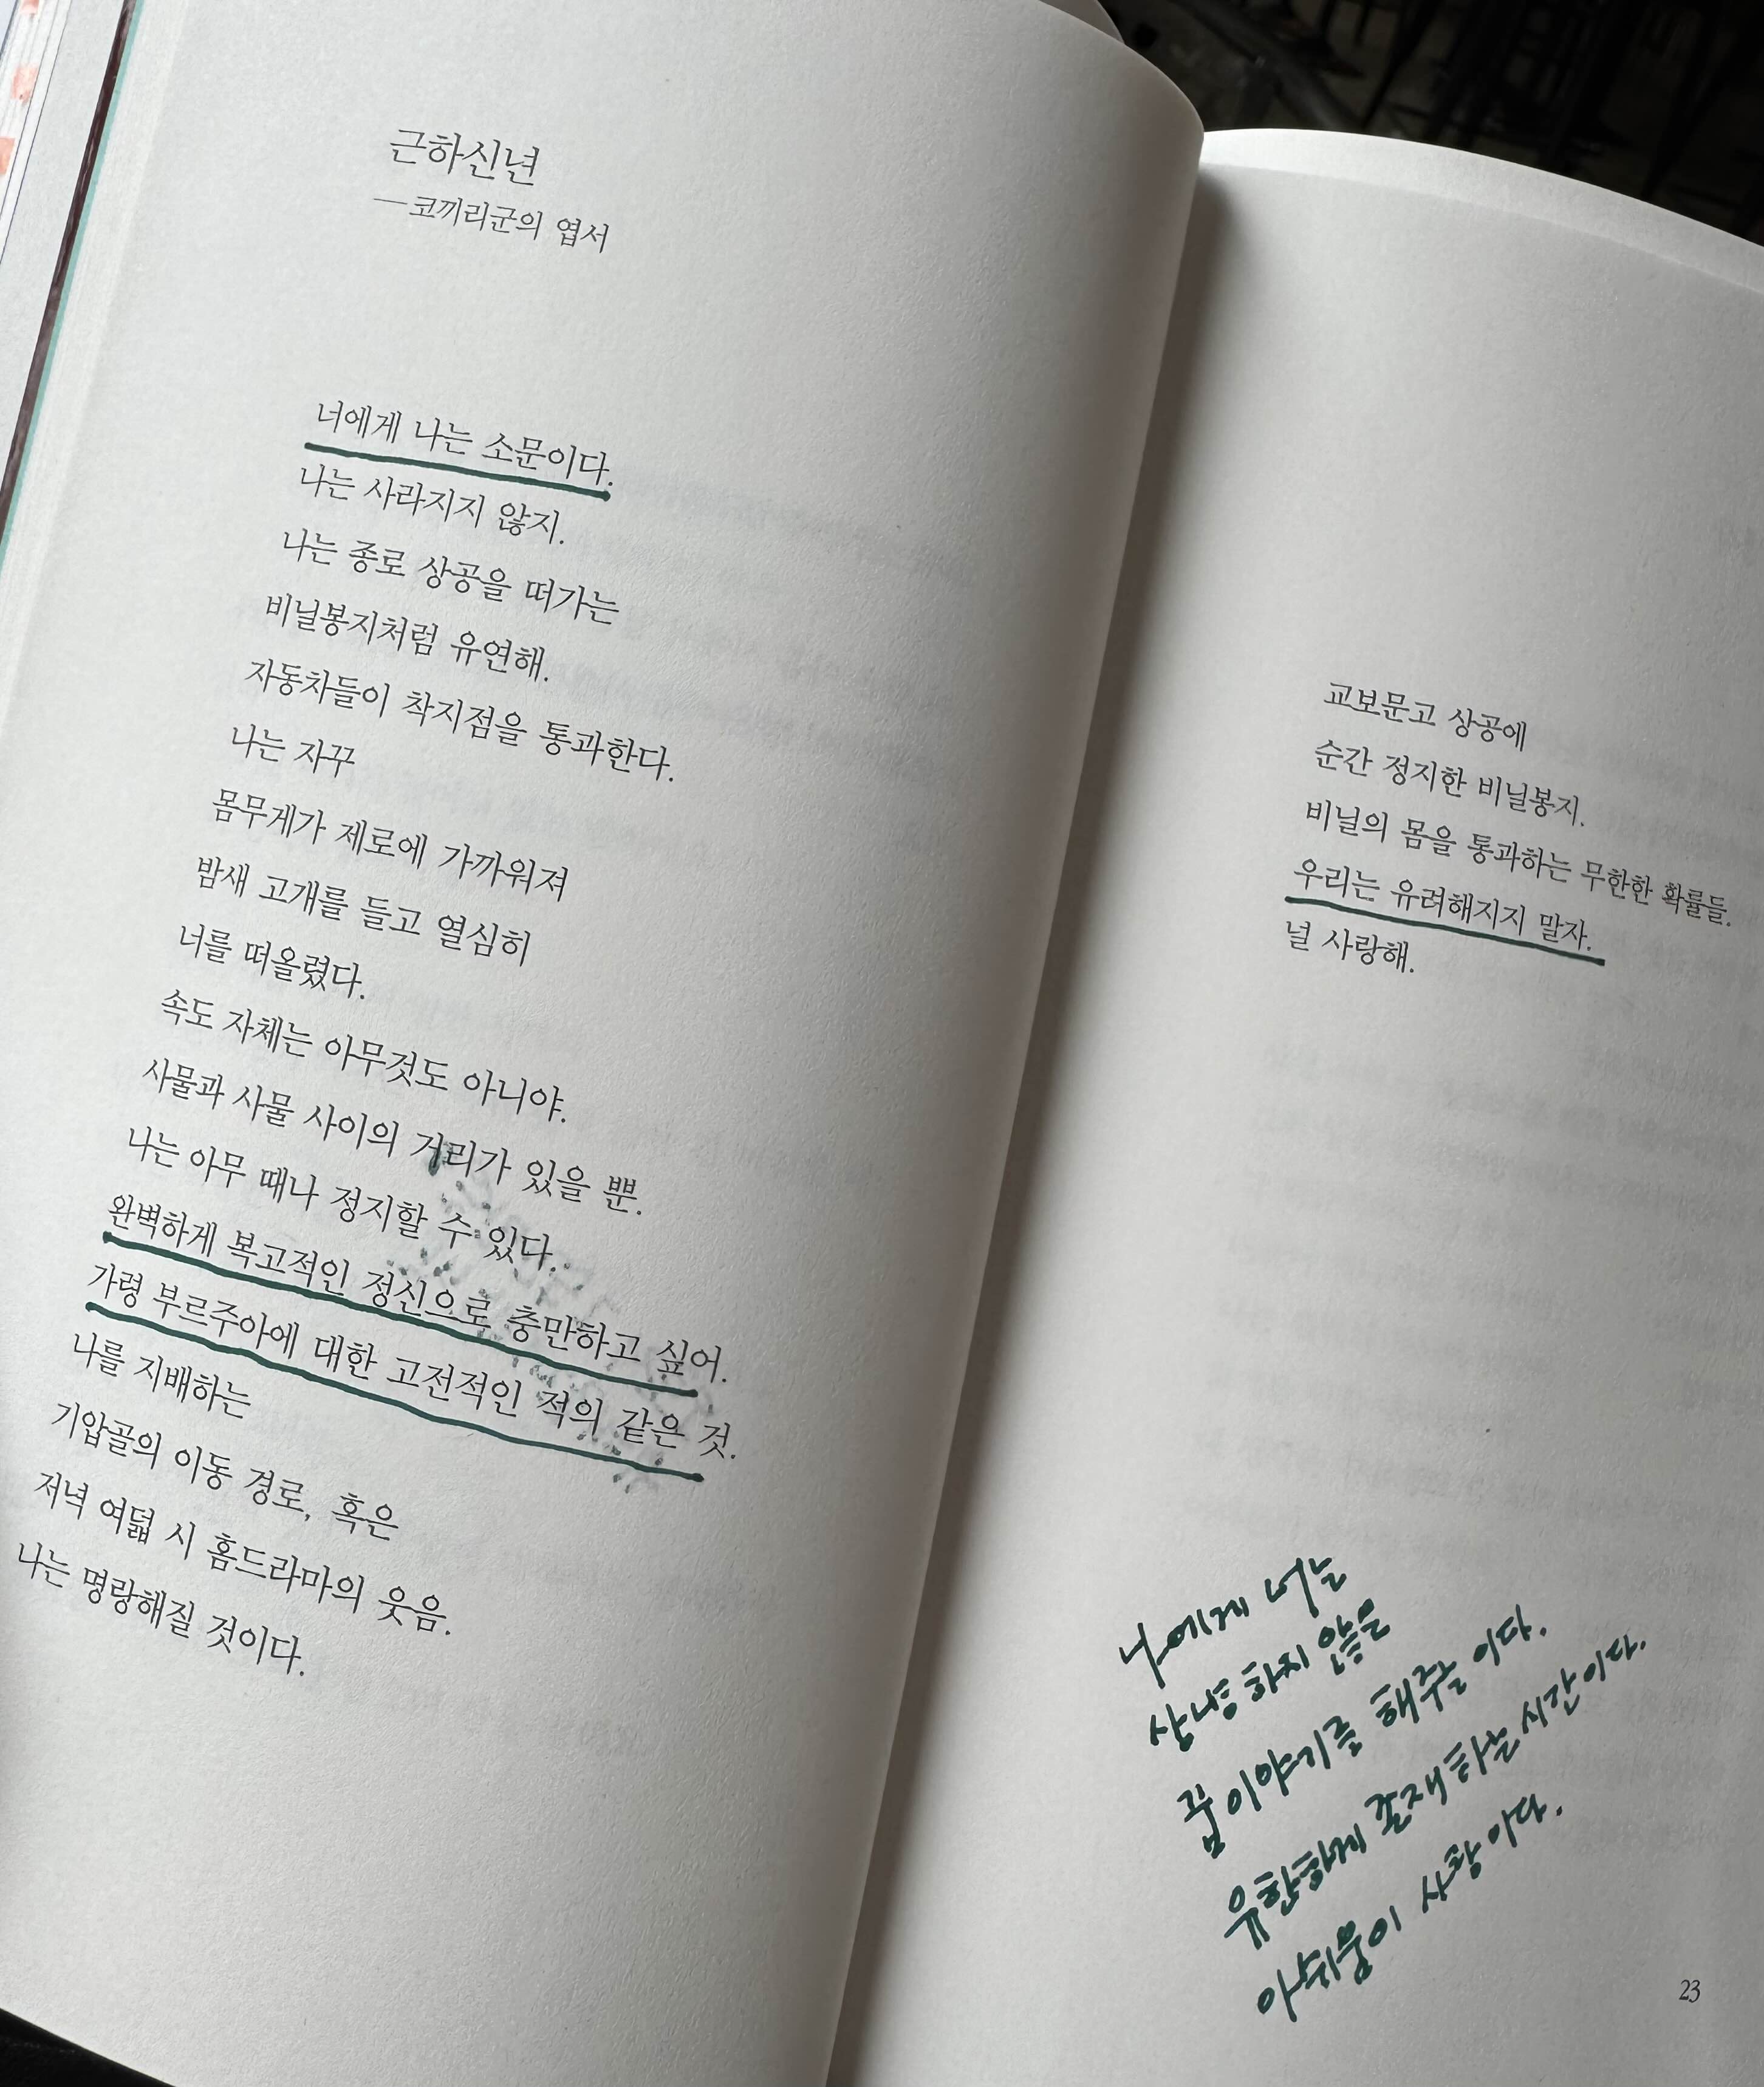 근하신년
—코끼리군의 엽서
너에게 나는 소문이다.
나는 사라지지 않지.
나는 종로 상공을 떠가는
비닐봉지처럼 유연해.
자동차들이 착지점을 통과한다.
나는 자꾸
몸무게가 제로에 가까워져
밤새 고개를 들고 열심히
너를 떠올렸다.
속도 자체는 아무것도 아니야.
사물과 사물 사이의 거리가 있을 뿐.
나는 아무 때나 정지할 수 있다.
완벽하게 복고적인 정신으로 충만하고 싶어.
가령 부르주아에 대한 고전적인 적의 같은 것.
나를 지배하는
기압골의 이동 경로, 혹은
저녁 여덟 시 홈드라마의 웃음.
나는 명랑해질 것이다.
교보문고 상공에
순간 정지한 비닐봉지.
비닐의 몸을 통과하는 무한한 확률들.
우리는 유려해지지 말자.
널 사랑해.
나에게 너는
상냥하지 않은
꿈이야기를 해주는 이다.
유한하게 존재하는 시간이다.
아쉬움이 사랑이다.
23